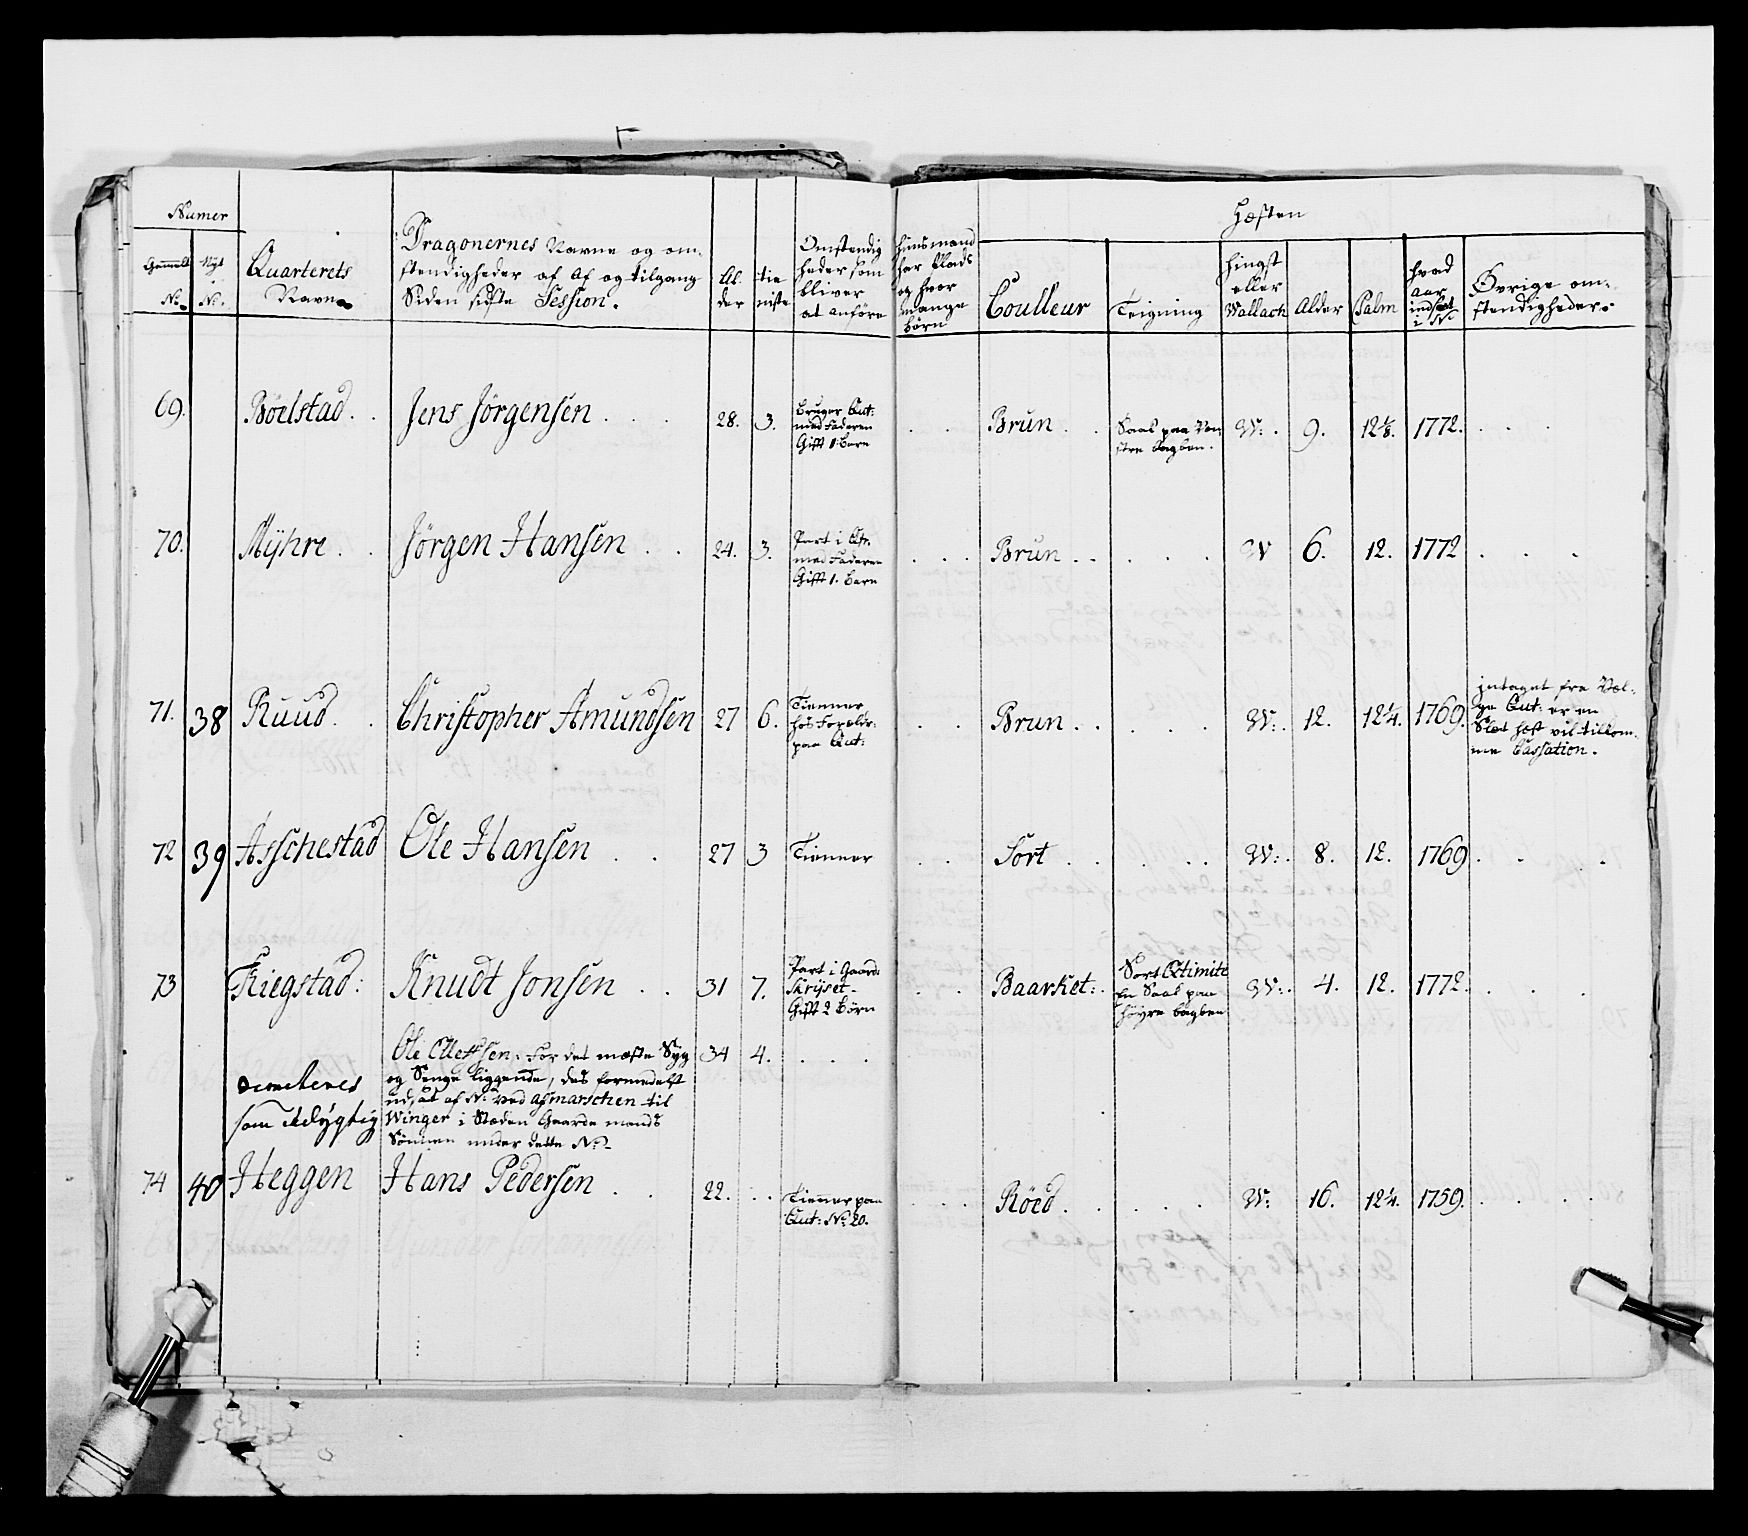 Numer
Gammelt No.
Nyt No.
Quarterets Navne
Dragonernes Navne og om-
stendigheder af Af og tilgang
Siden sidste Session.
Al-
der
tie
niste
Omstendig
heder som
bliver
at anföre
huusmand
har Plads
og hvor
mange
börn
Hesten
Coulleur
Teigning
Hingst
eller
Wallach
Alder
Palm
hvad
Aar
indsat
i No
Övrige om-
stendigheder.
69. Böelstad . . Jens Jörgensen . . . 28. 3.
Bruger Qut:
med Faderen
Gift 1. barn
. . Brun . .
Saal paa Ven
stre bagben.
W: . 9. 12⅛. 1772. . . .
70. Mÿhre . . Jörgen Hansen . . 24. 3.
Part i Qtr.
med Faderen
Gift 1. barn
. . . Brun . . . . . W 6. 12. 1772 . . .
71. 38 Ruud . . Christopher Amundsen 27 6.
Tienner
hos Forældr:
paa Qut:
. . Brun . . . . . W: . 12. 12¼. 1769.
intaget fra Vol-
ge Qut: er en
Slet hest vil tilkom-
me Cassation.
72 39 Asschestad Ole Hansen . . 27 3 Tienner . . Sort . . . . W: . 8. 12. 1769 . . .
73 Kiegstad: Knudt Jonsen . . 31 7.
Part i Gaard:
Skrÿset
Gift 2 börn
. . Baarket: .
Sort Extimite
En Saal paa
höyre bagben
W: . 4. 12. 1772. . . .
Ole Ellefsen. For det mæste Syg 34 4. . . .
og Senge liggende, des formedelst
udsat af No. ved afmarschen til
Winger i Stæden Gaarde mands
Sönnen under dette No.
som udÿgtig
74 40 Heggen Hans Pedersen . . 22. . .
Tienner paa
Qut: No. 20.
. . . Röed . . . . . W: 16. 12¼. 1759. . . . .